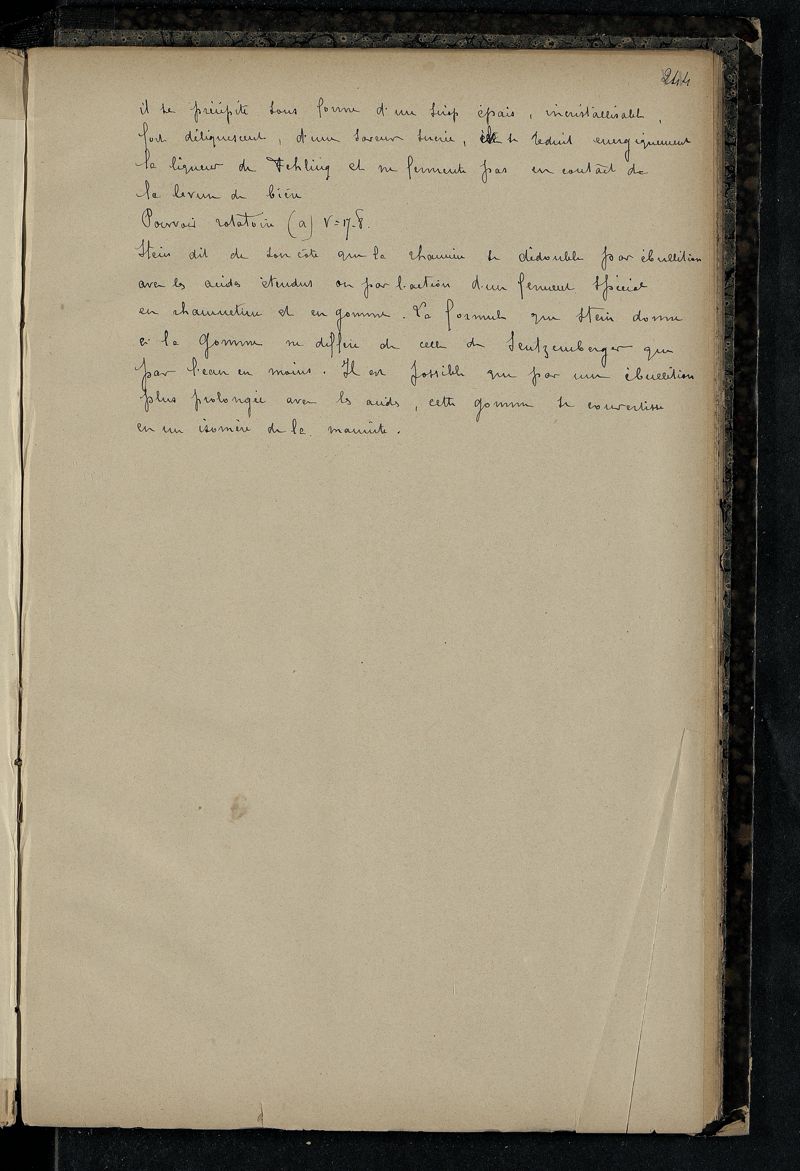 244
il se précipite sous forme d'un sirop épais, incristallisable,
fort déliquescent, d'une saveur sucrée, il réduit energiquement
la liqueur de Fehling et ne fermente pas en contact de
la levure de bière
Pouvoir rotatoire (a) r = 17.8.
Stein dit de son côté que la rhamnine se dédouble par ébullition
avec les acides étendus ou par l'action d'un ferment spécial
en rhamnetine et en gomme. La formule que Stein donne
à la Gomme ne diffère de celle de Seutzemberger que
par l'eau en moins. Il est possible que par une ébullition
plus prolongée avec les acides, cette gomme se convertisse
en un isomère de la mannite.